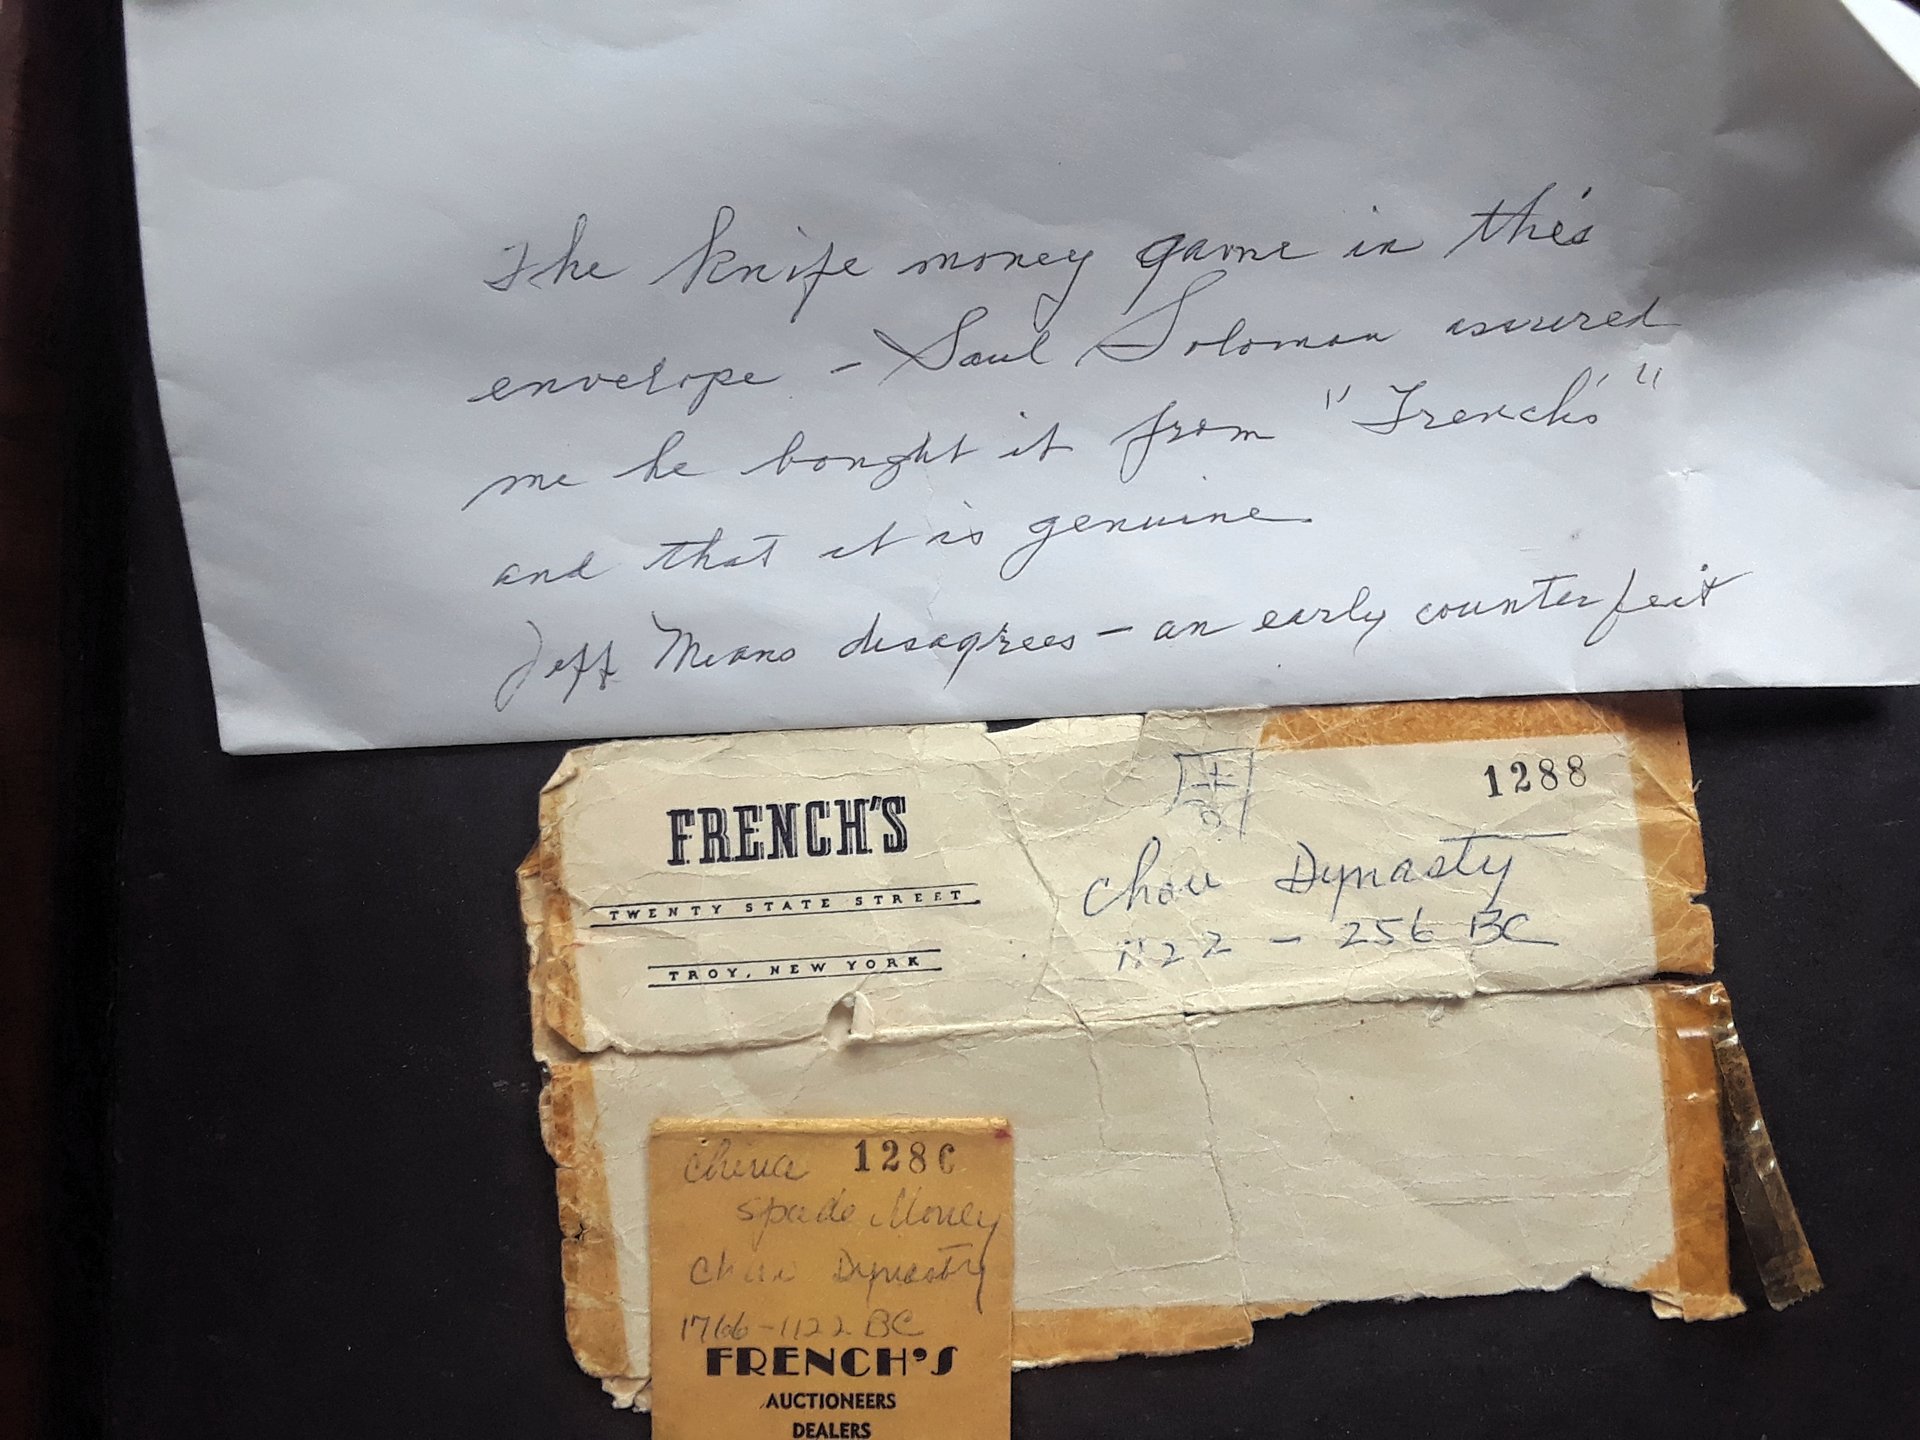 The knife money came in this
envelope - Saul Soloman assured
me he bought it from "French's"
and that it is genuine.
Jeff Means disagrees - an early counterfeit
FRENCH'S
TWENTY STATE STREET
TROY, NEW YORK
1288
Chou Dynasty
1122 - 256 BC
China 128C
Spade Money
Chou Dynasty
1766-1122 BC
FRENCH'S
AUCTIONEERS
DEALERS